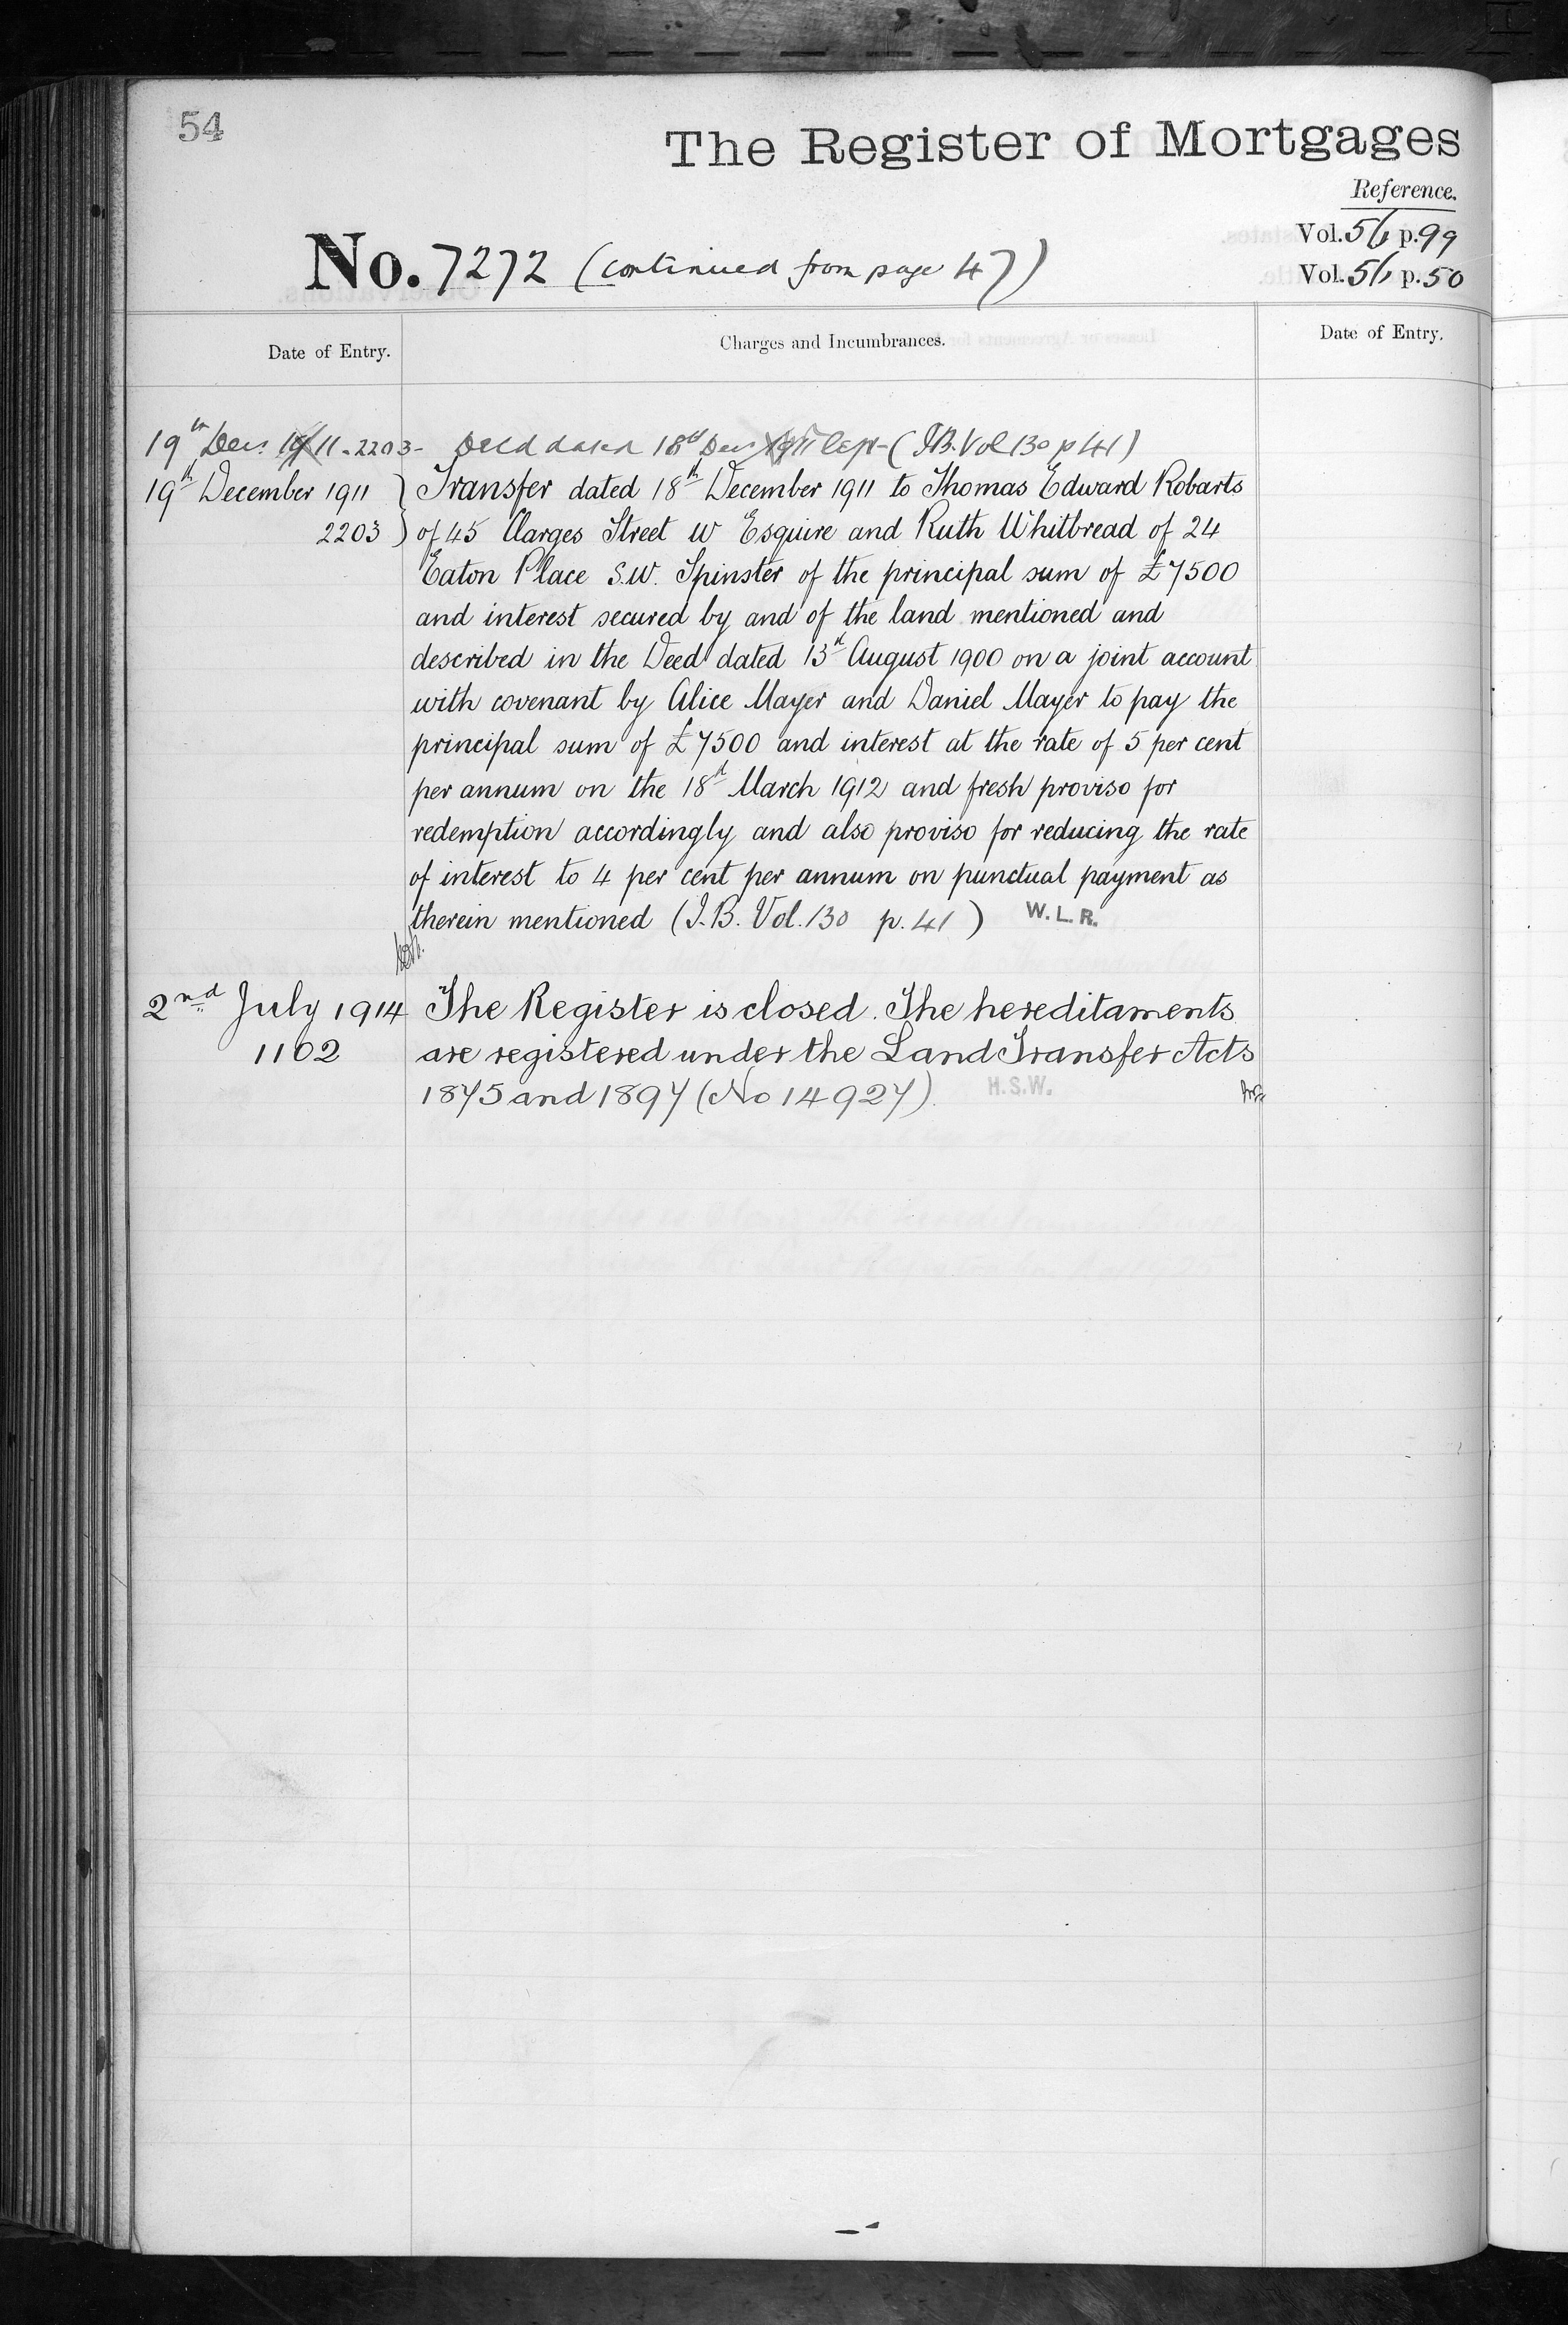 54
The Register of Mortgages
Reference.
Vol. 51, p. 99
No. 7272 (continued from page 47)
Vol. 51, p. 50
Date of Entry.
Charges and Incumbrances.
Date of Entry.
19th Decr. 1911 - 2203 - Deed dated 18th Decr 1911 Dept - (I.B. Vol 130 p 41)
19th December 1911 } Transfer dated 18th December 1911 to Thomas Edward Robarts
2203 } of 45 Clarges Street W Esquire and Ruth Whitbread of 24
Eaton Place S.W. Spinster of the principal sum of £7500
and interest secured by and of the land mentioned and
described in the Deed dated 13th August 1900 on a joint account
with covenant by Alice Mayer and Daniel Mayer to pay the
principal sum of £7500 and interest at the rate of 5 per cent
per annum on the 18th March 1912 and fresh proviso for
redemption accordingly and also proviso for reducing the rate
of interest to 4 per cent per annum on punctual payment as
therein mentioned (I.B. Vol. 130 p. 41) W.L.R.
2nd July 1914 The Register is closed. The hereditaments
1102 are registered under the Land Transfer Acts
1875 and 1897 (No 14927). H.S.W.